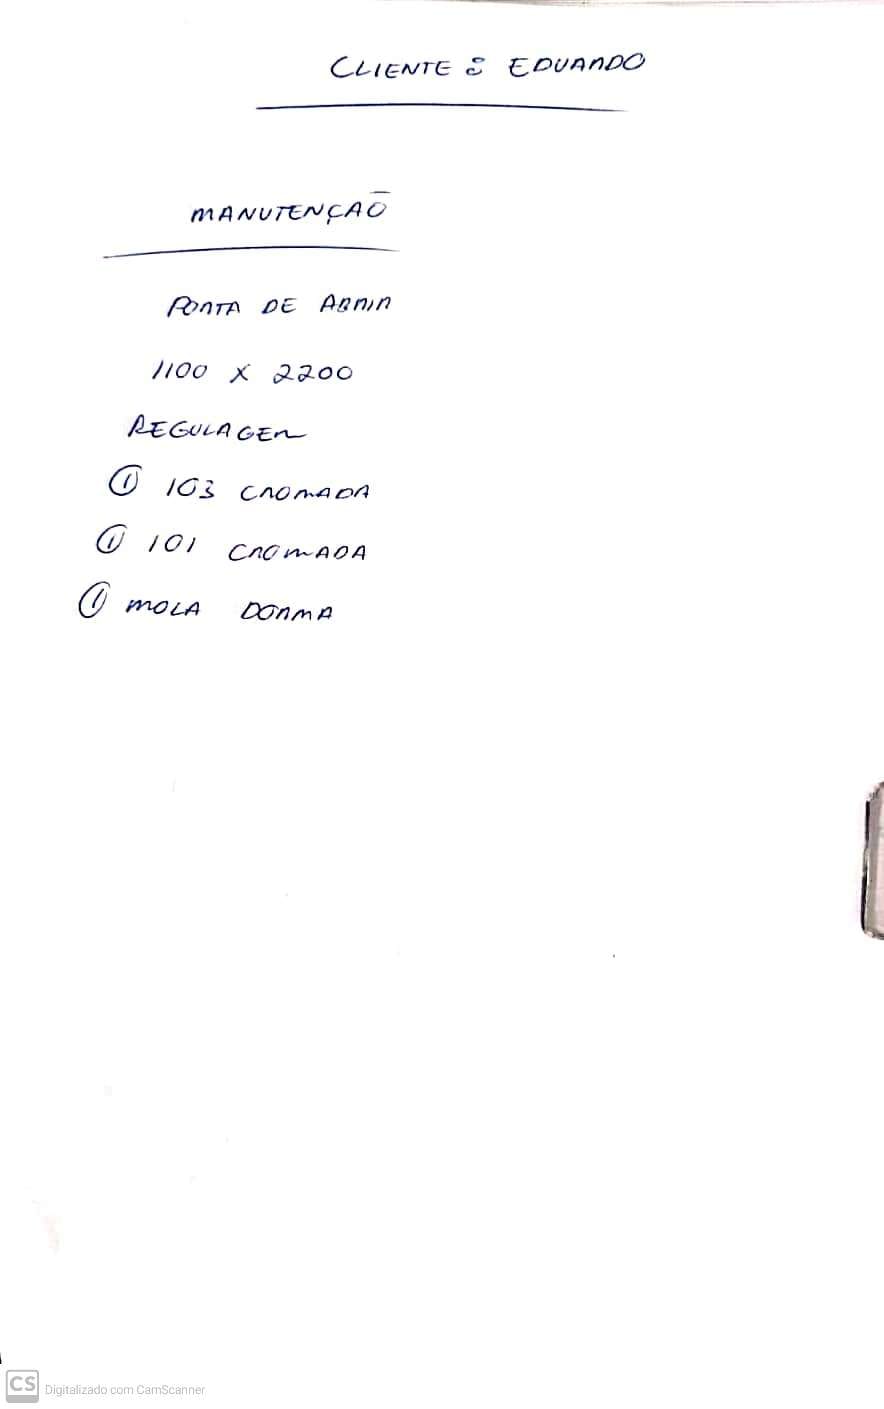 CLIENTE : EDUARDO
MANUTENÇAÕ
PORTA DE ABRIR
1100 X 2200
REGULAGEM
① 103 CROMADA
① 101 CROMADA
① MOLA DORMA
CS Digitalizado com CamScanner